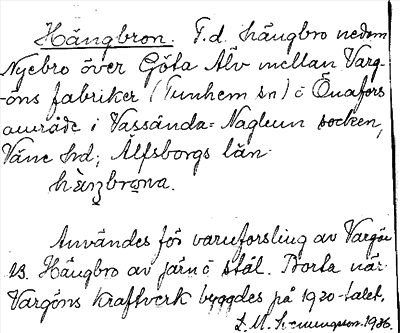 Hängbron. F.d. hängbro nedom
Nyebro över Göta Älv mellan Varg-
öns fabriker (Tunhem sn) o Önafors
område i Vassända-Naglum socken,
Väne hd; Älfsborgs län
Användes för varuforsling av Vargöns
Hängbro av järn o stål. Borta när
Vargöns kraftverk byggdes på 1920-talet.
1936.